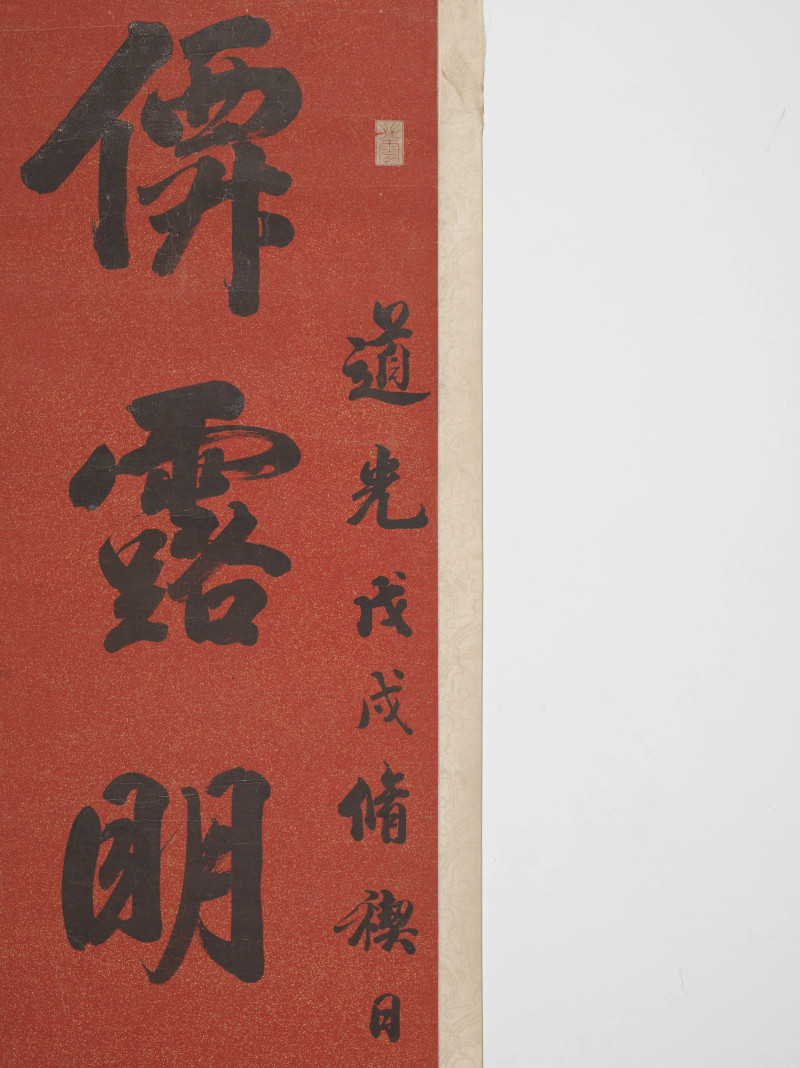 道光戊戌脩禊日
僊露明